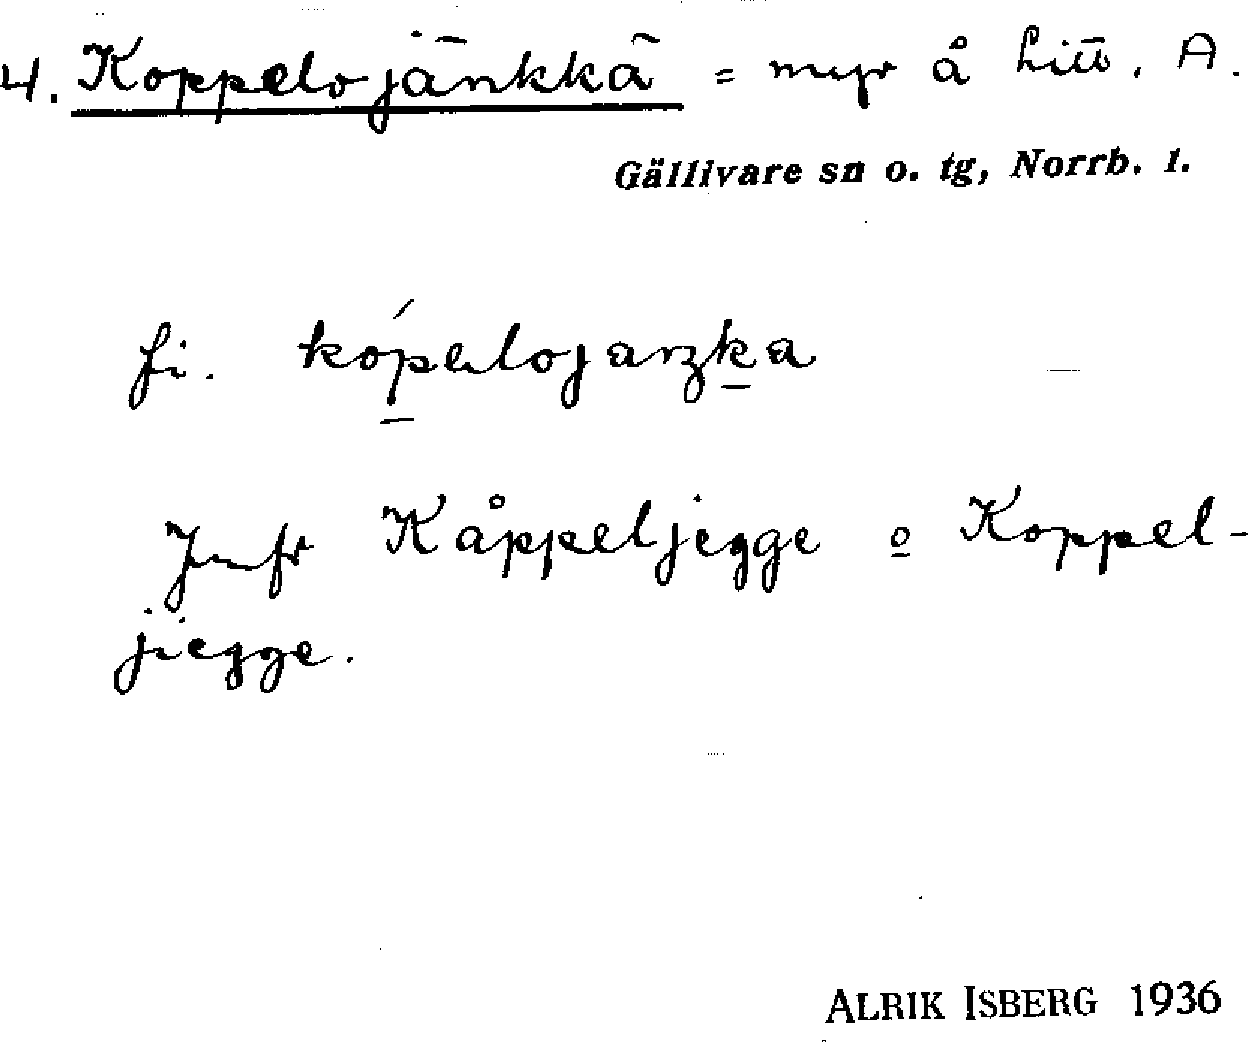 4. Koppelojänkkä = myr å Litt. A.
Gällivare sn o. tg, Norrb. l.
fi.
Jmfr Kåppeljegge o Koppel-
jiegge.
ALRIK ISBERG 1936